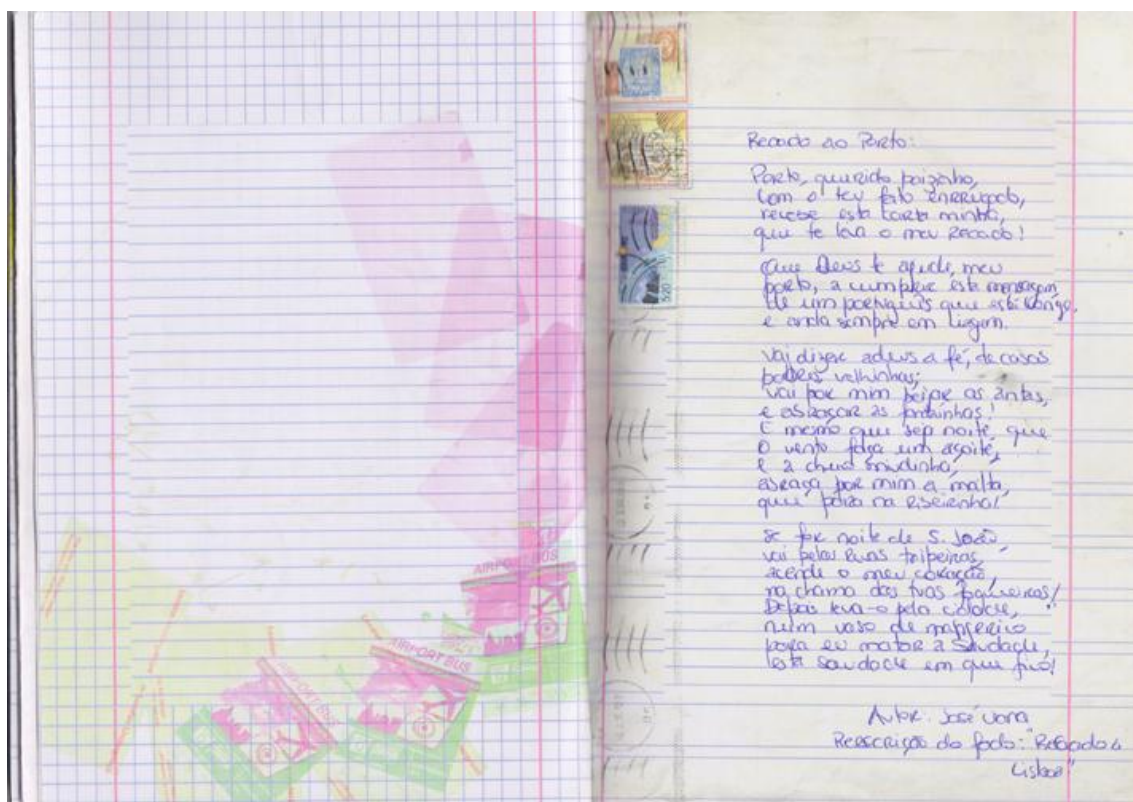 Recado ao Porto:
Porto, querido paizinho,
com o teu fato enrrugado,
recebe esta carta minha,
que te leva o meu recado!
Que Deus te ajude, meu
porto, a cumprir esta mensagem,
de um português que está longe,
e anda sempre em viagem.
Vai dizer adeus a fé, de casas
pobres velhinhas;
vai por mim beijar as antas,
e abraçar as fontainhas!
E mesmo que seja noite, que
o vento faça um açoite,
e a chuva miudinha,
abraça por mim a malta,
que paira na Ribeirinha!
Se for noite de S. João,
vai pelas ruas tripeiras,
acende o meu coração,
na chama das tuas fogueiras!
Depois leva-o pela cidade,
num vaso de mangerico
para eu matar a saudade,
esta saudade em que fico!
Autor: José
Reescrição do fado: "Recado a
Lisboa"
AIRPORT BUS
AIRPORT BUS
AIRPORT BUS
520